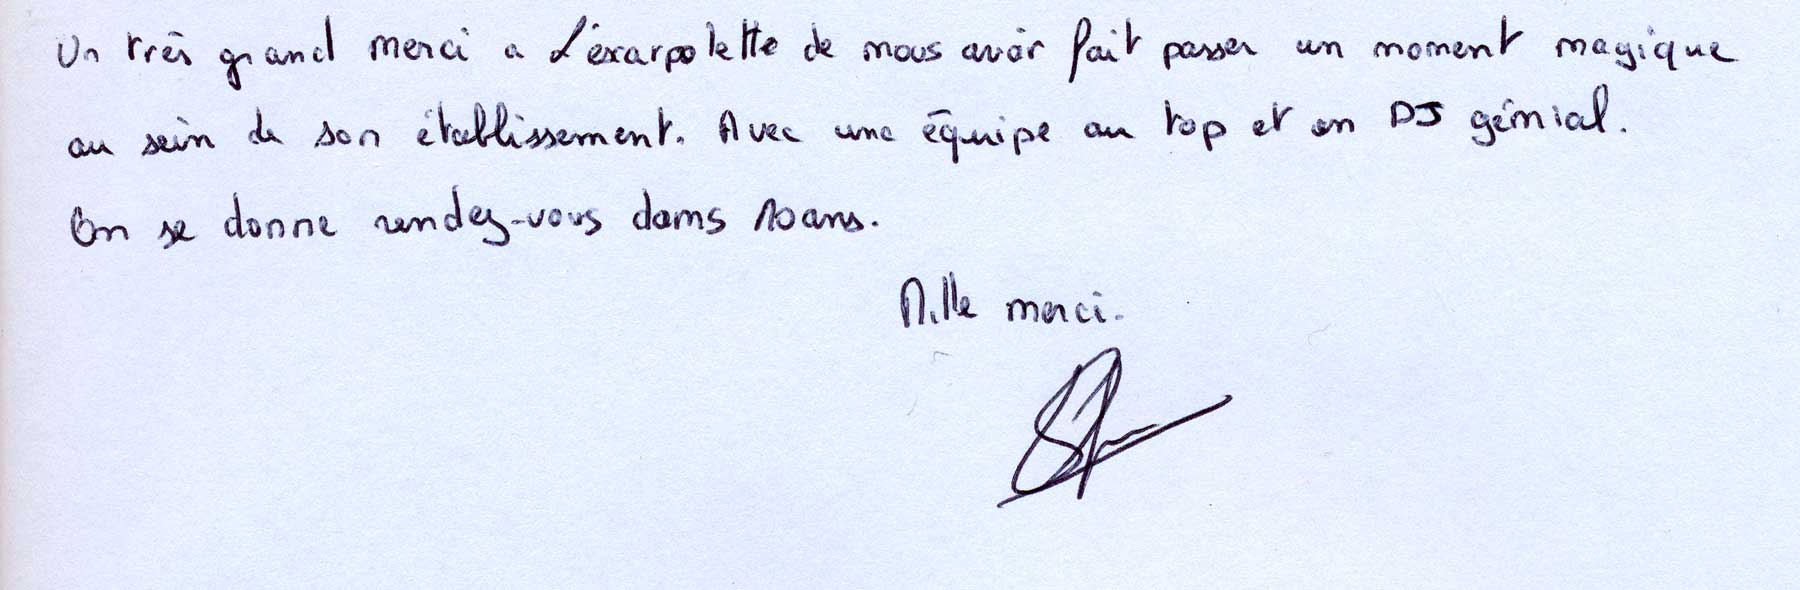 Un très grand merci a L'éxarpolette de nous avoir fait passer un moment magique
au sein de son établissement. Avec une équipe au top et un DJ génial.
On se donne rendez-vous dans 10 ans.
Mille merci.